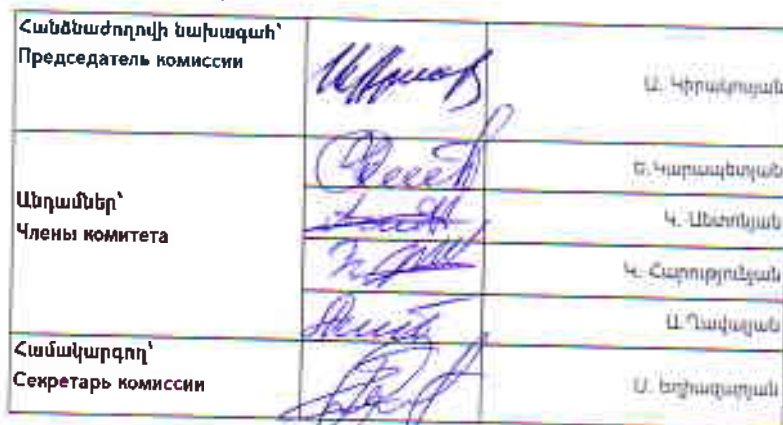 Հանձնաժողովի նախագահ՝
Председатель комиссии
Ա. Կիրակոսյան
Ե.Կարապետյան
Անդամներ՝
Члены комитета
Կ. Անտոնյան
Կ. Հարությունյան
Ա.Ղավալյան
Համակարգող՝
Секретарь комиссии
Ա. Եղիազարյան